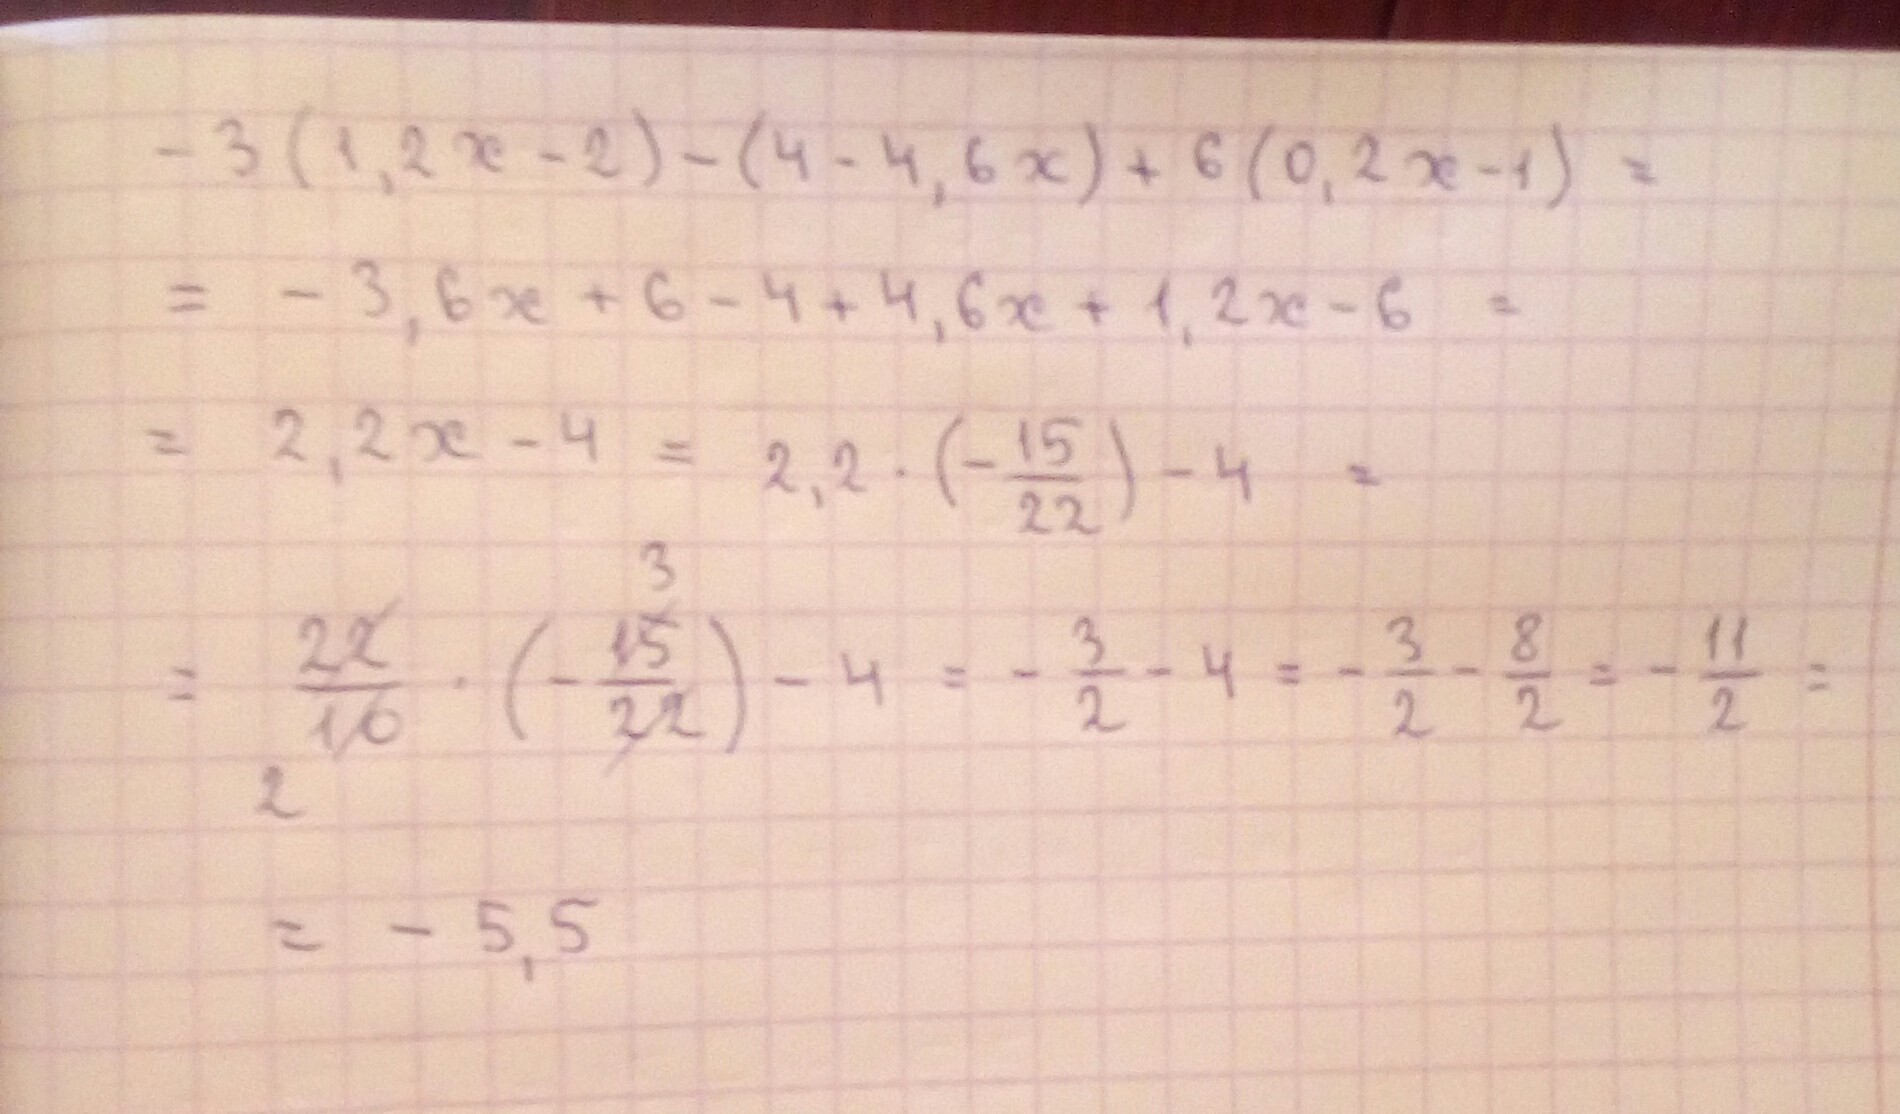 -3(1,2x-2)-(4-4,6x)+6(0,2x-1) =
= -3,6x+6-4+4,6x+1,2x-6 =
= 2,2x-4 = 2,2·(-15/22)-4 =
3
= 22/10·(-15/22)-4 = -3/2-4 = -3/2-8/2 = -11/2 =
2
= -5,5